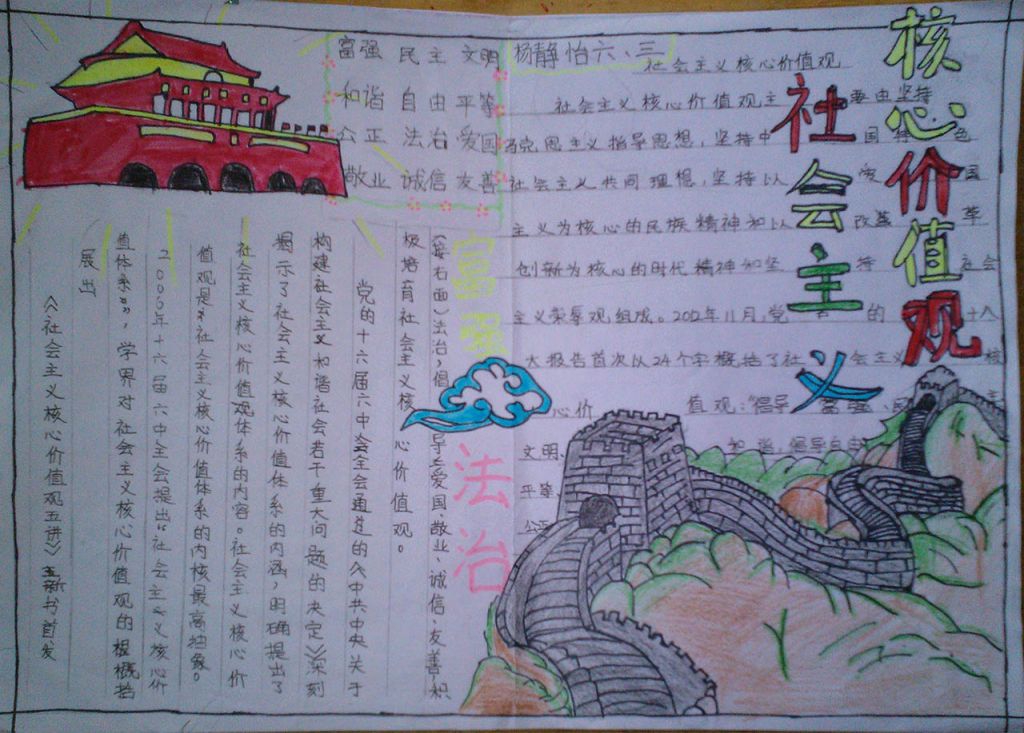 核心价值观
社会主义
富强 民主 文明
和谐 自由 平等
公正 法治 爱国
敬业 诚信 友善
杨静怡六、三
社会主义核心价值观
社会主义核心价值观主要由坚持
马克思主义指导思想，坚持中国特色
社会主义共同理想，坚持以爱国
主义为核心的民族精神和以改革
创新为核心的时代精神和坚持社会
主义荣辱观组成。2012年11月，党的十八
大报告首次以24个字概括了社会主义核
心价值观："倡导富强、民主
文明、和谐，倡导自由
平等、
公正
富强
法治
（接右面）法治，倡导与爱国、敬业、诚信、友善积
极培育社会主义核心价值观。
党的十六届六中全会通过的《中共中央关于
构建社会主义和谐社会若干重大问题的决定》深刻
揭示了社会主义核心价值体系的内涵，明确提出了
社会主义核心价值观体系的内容。社会主义核心价
值观是"社会主义核心价值体系的内核最高抽象。
2006年十六届六中全会提出"社会主义核心价
值体系"，学界对社会主义核心价值观的概括
展出
《社会主义核心价值观五讲》新书首发